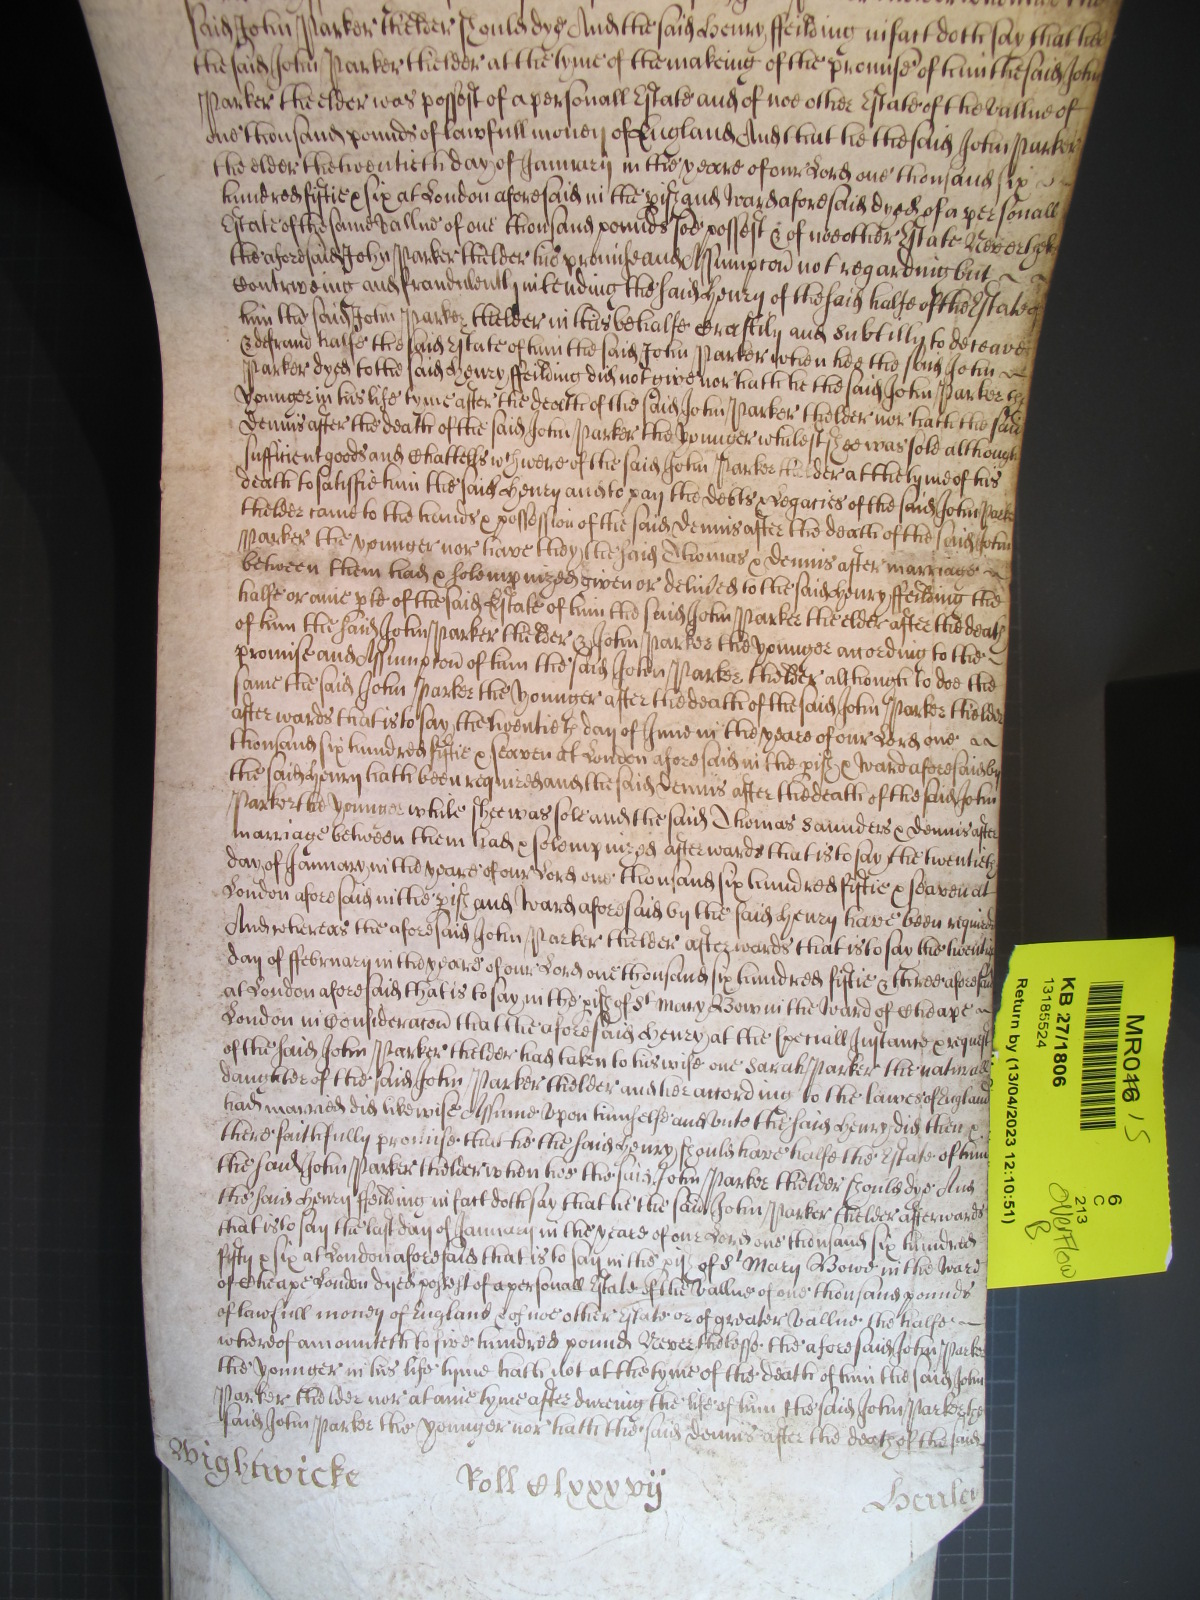 said John Parker thelder should dye And the said Henry ffeilding in fact doth say that hee
the said John Parker thelder at the tyme of the makeing of the promise of him the said John
Parker the elder was possest of a personall Estate and of noe other Estate of the vallue of
one thousand pounds of lawfull money of England And that he the said John Parker
the elder the twentieth day of January in the yeare of our Lord one thousand six
hundred fiftie & six at London aforesaid in the pish and Ward aforesaid dyed of a personall
Estate of the same vallue of one thousand pounds soe possest & of noe other Estate Neverthel
the aforesaid John Parker thelder his promise and Assumpcon not regarding but
Contriveing and fraudulently intending the said Henry of the said halfe of the Estate of
him the said John Parker thelder in this behalfe Craftily and subtilly to deceave
& defraud halfe the said Estate of him the said John Parker when hee the said John
Parker dyed to the said Henry ffeilding did not give nor hath he the said John Parker the
Younger in his life tyme after the death of the said John Parker thelder nor hath the said
Dennis after the death of the said John Parker the Younger whilest shee was sole although
sufficient goods and Chattells wch were of the said John Parker thelder at the tyme of his
death to satisfie him the said Henry and to pay the debts & Legacies of the said John Parker
thelder came to the hands & possession of the said Dennis after the death of the said John
Parker the younger nor have they the said Thomas & Dennis after marriage
between them had & solempnized given or delived to the said Henry ffeilding the
halfe or anie pte of the said Estate of him the said John Parker the elder after the death
of him the said John Parker thelder & John Parker the Younger according to the
promise and Assumpcon of him the said John Parker thelder although to doe the
same the said John Parker the Younger after the death of the said John Parker thelder
afterwards that is to say the twentieth day of June in the yeare of our Lord one
thousand six hundred fiftie & seaven at London aforesaid in the pish & Ward aforesaid by
the said Henry hath been required and the said Dennis after the death of the said John
Parker the Younger while shee was sole and the said Thomas Saunders & Dennis after
marriage between them had & solempnized afterwards that is to say the twentieth
day of January in the yeare of our Lord one thousand six hundred fiftie & seaven at
London aforesaid in the pish and Ward aforesaid by the said Henry have been required
And whereas the aforesaid John Parker thelder afterwards that is to say the twentieth
day of ffebruary in the yeare of our Lord one thousand six hundred fiftie & three aforesaid
at London aforesaid that is to say in the pish of St Mary Bow in the Ward of Cheape
London in Consideracon that he aforesaid Henry at the speciall Instance & request
of the said John Parker thelder had taken to his wife one Sarah Parker the naturall
daughter of the said John Parker thelder and her according to the lawes of England
had married did likewise Assume upon himselfe and unto the said Henry did then &
there faithfully promise that he the said Henry should have halfe the Estate of him
the said John Parker thelder when hee the said John Parker thelder should dye And
the said Henry ffeilding in fact doth say that he the said John Parker thelder afterwards
that is to say the last day of January in the yeare of our Lord one thousand six hundred
fifty & six at London aforesaid that is to say in the pish of St Mary Bowe in the Ward
of Cheape London dyed possest of a personall Estate of the vallue of one thousand pounds
of lawfull money of England & of noe other Estate or of greater vallue the halfe
whereof amounteth to five hundred pound Neverthelesse the aforesaid John Parker
the Younger in his life tyme hath not at the tyme of the death of him the said John
Parker thelder nor at anie tyme after dureing the life of him the said John Parker the
said John Parker the Younger nor hath the said Dennis after the death of the said
Wightwicke Roll Clxxxvij Henley
MR046 / 15
KB 27/1806
13185524
Return by (13/04/2023 12:10:51)
6
C
213
overflow
B